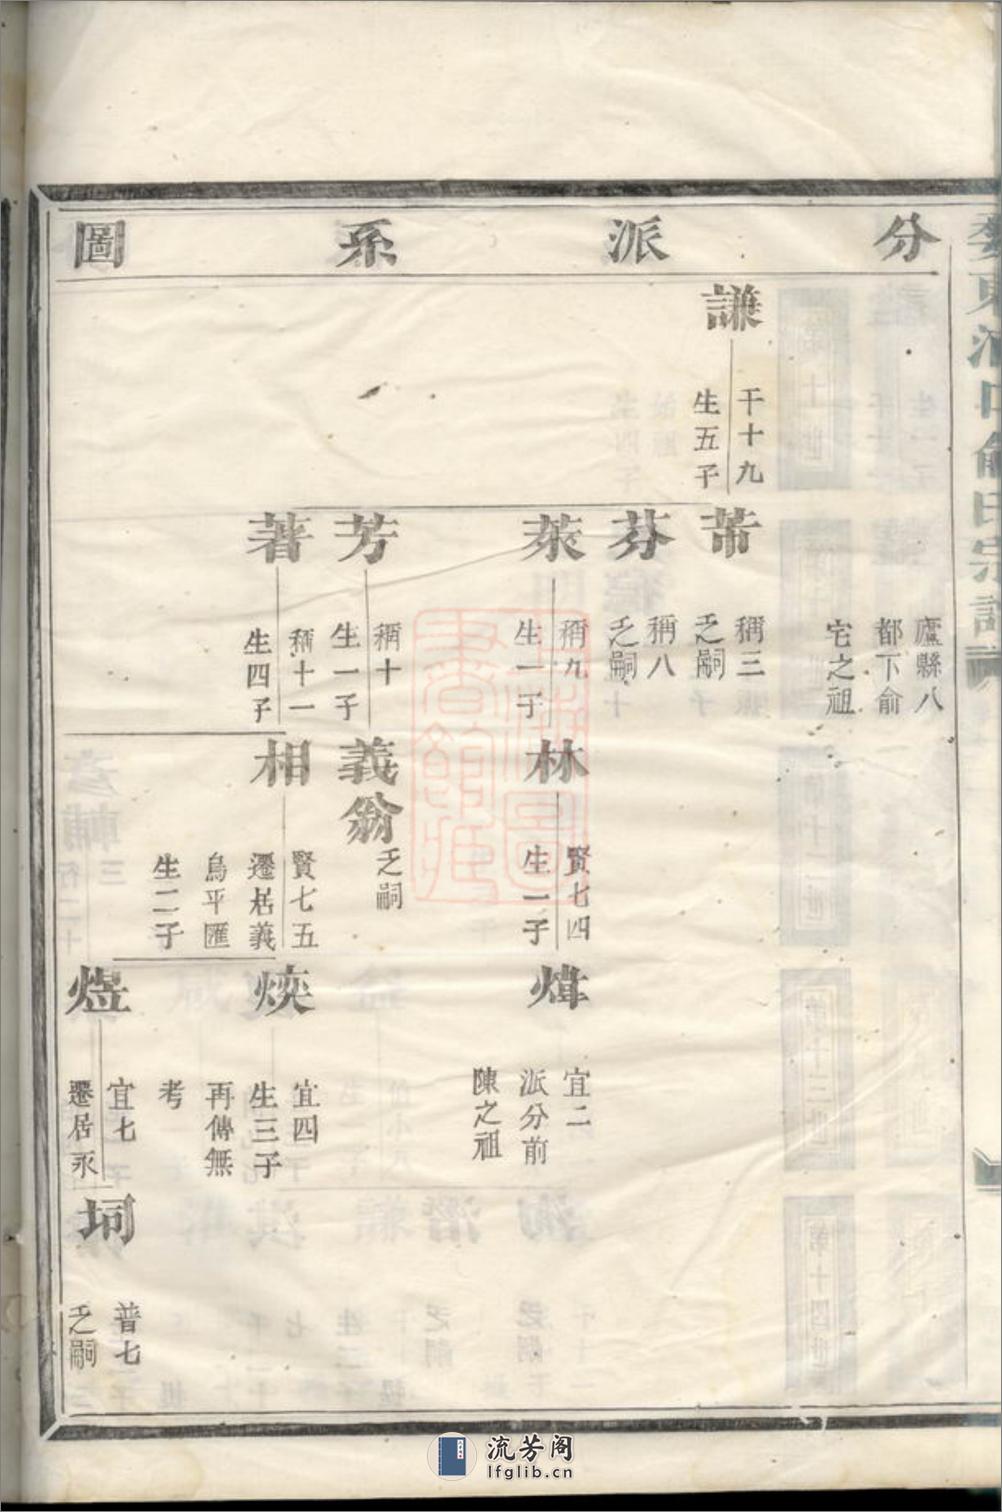 分派系圖
謙
千十九
生五子
芾
芬
萊
芳
著
廬縣八
都下俞
宅之祖
稱三
乏嗣
稱八
乏嗣
稱九
生一子
稱十
生一子
稱十一
生四子
林
義翁
相
賢七四
生一子
乏嗣
賢七五
遷居義
烏平匯
生二子
煒
煐
煜
宜二
派分前
陳之祖
宜四
生三子
再傳無
考
宜七
遷居永
坰
普七
乏嗣
流芳阁
lfglib.cn